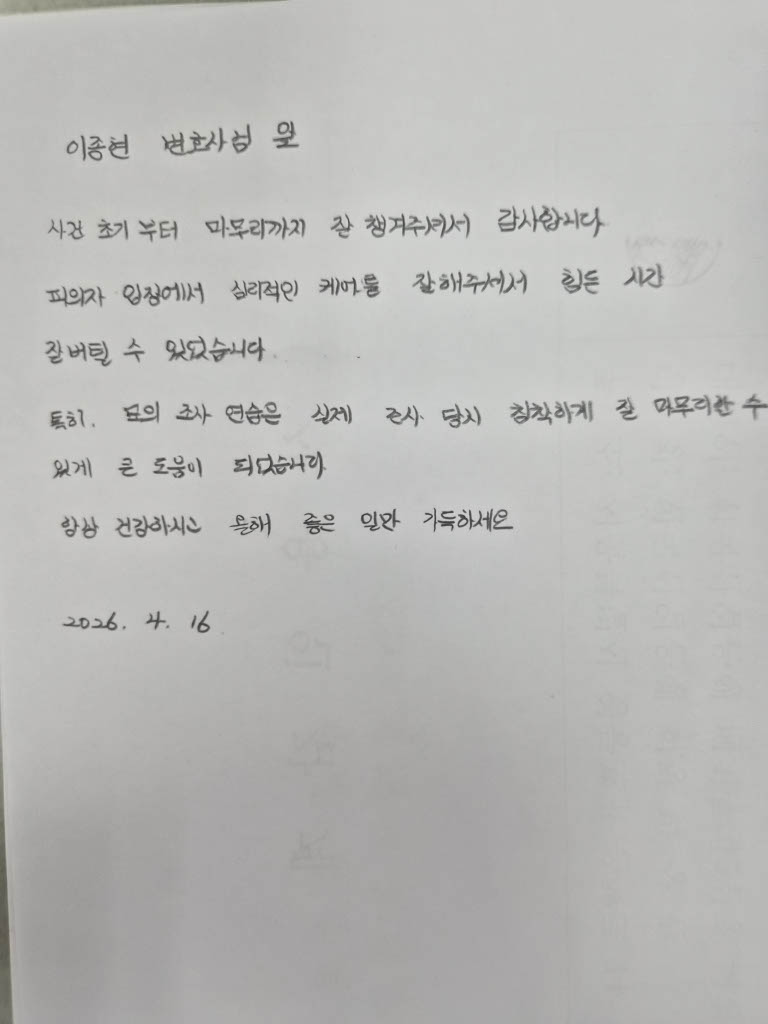 이종현 변호사님 앞
사건 초기 부터 마무리까지 잘 챙겨주셔서 감사합니다
피의자 입장에서 심리적인 케어를 잘해주셔서 힘든 시간
잘버틸 수 있었습니다.
특히. 모의 조사 연습은 실제 조사 당시 침착하게 잘 마무리할 수
있게 큰 도움이 되었습니다
항상 건강하시고 올해 좋은 일만 가득하세요
2026. 4. 16